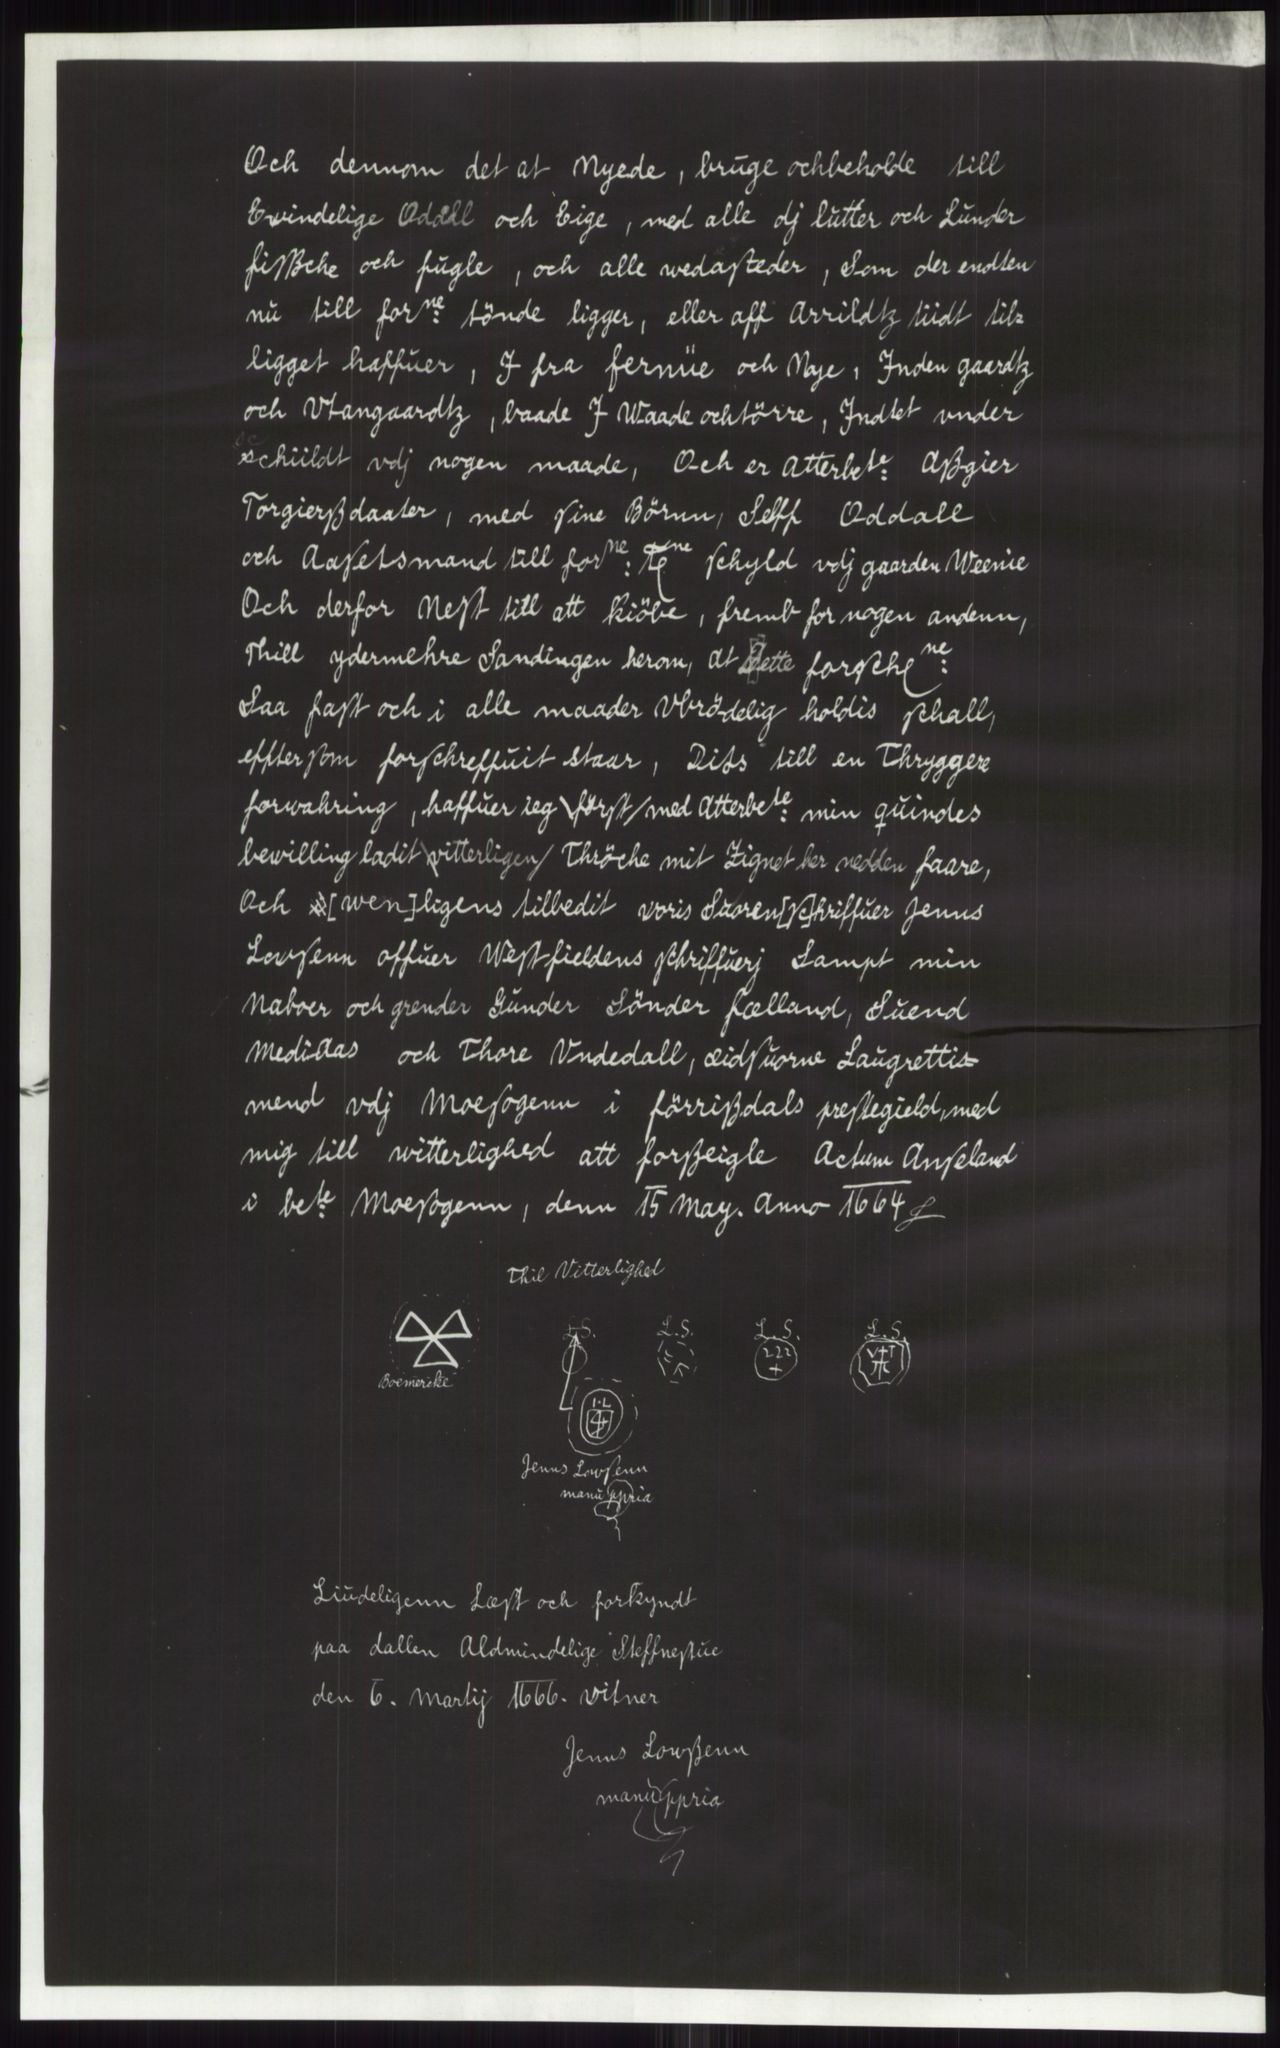 Och dennom det at Nyede, bruge ochbeholde till
Ewindelige Odall och Eige, med alle dj lutter och Lunder
fißche och fugle, och alle wedasteder, Som der endten
nu till forne: tönde ligger, eller aff Arrildtz tiidt til=
ligget haffuer, I fra fernüe och Nye, Inden gaardtz
och Vtangaardtz, baade I Waade ochtörre, Indtet vnder
schiildt vdj nogen maade, Och er Atterbete: Aßgier
Torgierßdaater, med sine Börnn, Self Oddall
och Aasetsmand till forne: schyld vdj gaarden Weenie
Och derfor Nest till att kiöbe, fremb for nogen andenn,
Thill ydermehre Sandingen herom, at Dette forschne:
Saa fast och i alle maader Vbrödelig holdis schall,
effter som forschreffuit staar, Dits till en Thryggere
forwahring, haffuer ieg \först/ med Atterbete: min quindes
bewilling ladit \vitterligen/ Thröche mit Zignet her nedden faare,
Och [wen]ligens tilbedit voris Suoren[sc]hriffuer Jenns
Lowsenn offuer Westfieldens schriffuerj Sampt min
Naboer och grender Gunder Sönder fælland, Suend
Mediaas och Thore Vndedall, æidsuorne Laugrettis=
mend vdj Moesogenn i förrißdals prestegield, med
mig till witterlighed att forßeigle Actum Anseland
i bete: Moesogenn, denn 15 May. Anno 1664
Thil Vitterlighed
L.S. L.S. L.S. L.S.
222
V T
Boemercke
I·L
Jenns Lowsenn
manu ppria
Liudeligenn Læst och forkyndt
paa dallen Aldmindelige Steffnestue
den 6. Martij 1666. vitner
Jenns Lowßenn
manu ppria